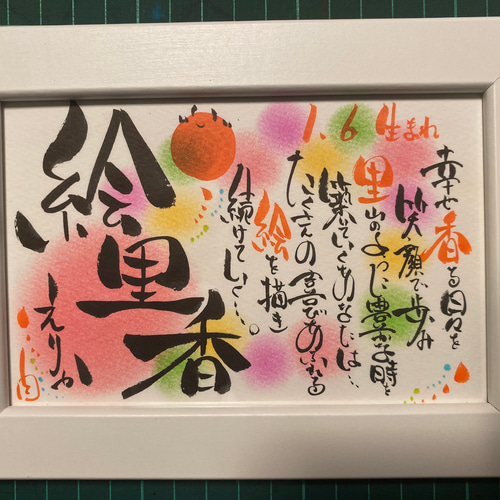 1.6 生まれ
幸せ香る日々を
笑顔で歩み
里山のように豊かな時を
築いていくあなたは…
たくさんの喜びあふれる
絵を描き
続けていく…。
絵里香
えりか